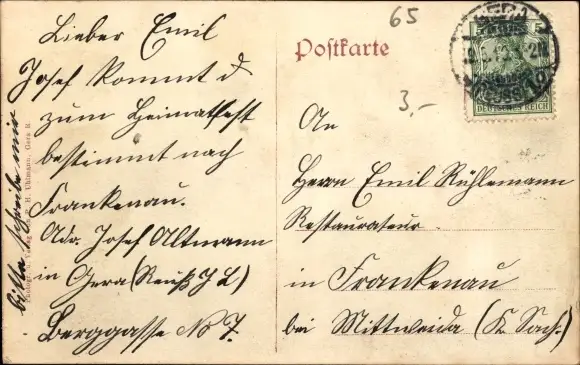 Lieber Emil
Josef kommt d
zum Heimatfest
bestimmt nach
Frankenau.
Adr. Josef Altmann
in Gera (Reuß J L)
Berggasse No 7.
bitte schreibe mir
65
Postkarte
3,-
DEUTSCHES REICH
An
Herrn Emil Rühlemann
Restaurateur
in Frankenau
bei Mittweida (K Sach.)